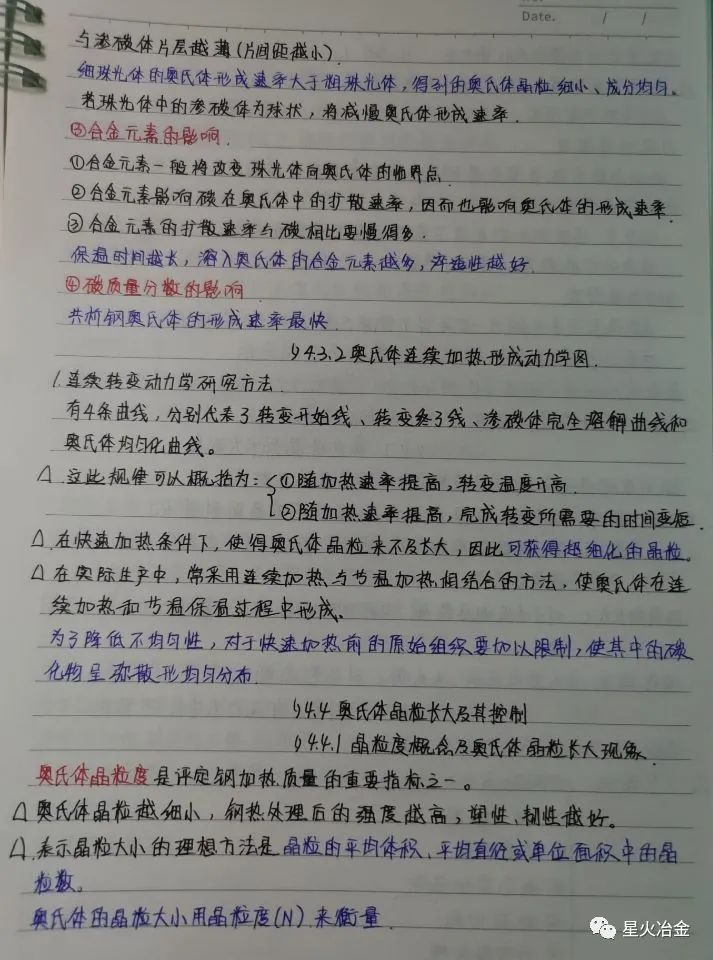 No.
Date. / /
与渗碳体片层越薄(片间距越小).
细珠光体的奥氏体形成速率大于粗珠光体,得到的奥氏体晶粒细小、成分均匀。
若珠光体中的渗碳体为球状,将减慢奥氏体形成速率.
③合金元素的影响.
①合金元素一般将改变珠光体向奥氏体的临界点.
②合金元素影响碳在奥氏体中的扩散速率,因而也影响奥氏体的形成速率.
③合金元素的扩散速率与碳相比要慢得多.
保温时间越长,溶入奥氏体的合金元素越多,淬透性越好.
④碳质量分数的影响
共析钢奥氏体的形成速率最快.
§4.3.2奥氏体连续加热形成动力学图.
1.连续转变动力学研究方法.
有4条曲线,分别代表了转变开始线、转变终了线、渗碳体完全溶解曲线和
奥氏体均匀化曲线。
△ 这些规律可以概括为:①随加热速率提高,转变温度升高.
②随加热速率提高,完成转变所需要的时间变短.
△.在快速加热条件下,使得奥氏体晶粒来不及长大,因此可获得超细化的晶粒。
△在实际生产中,常采用连续加热与节温加热相结合的方法,使奥氏体在连
续加热和节温保温过程中形成.
为了降低不均匀性,对于快速加热前的原始组织要加以限制,使其中的碳
化物呈弥散形均匀分布.
§4.4 奥氏体晶粒长大及其控制
§4.4.1 晶粒度概念及奥氏体晶粒长大现象.
奥氏体晶粒度是评定钢加热质量的重要指标之一。
△奥氏体晶粒越细小,钢热处理后的强度越高,塑性、韧性越好。
△.表示晶粒大小的理想方法是晶粒的平均体积、平均直径或单位面积中的晶
粒数。
奥氏体的晶粒大小用晶粒度(N)来衡量.
星火冶金